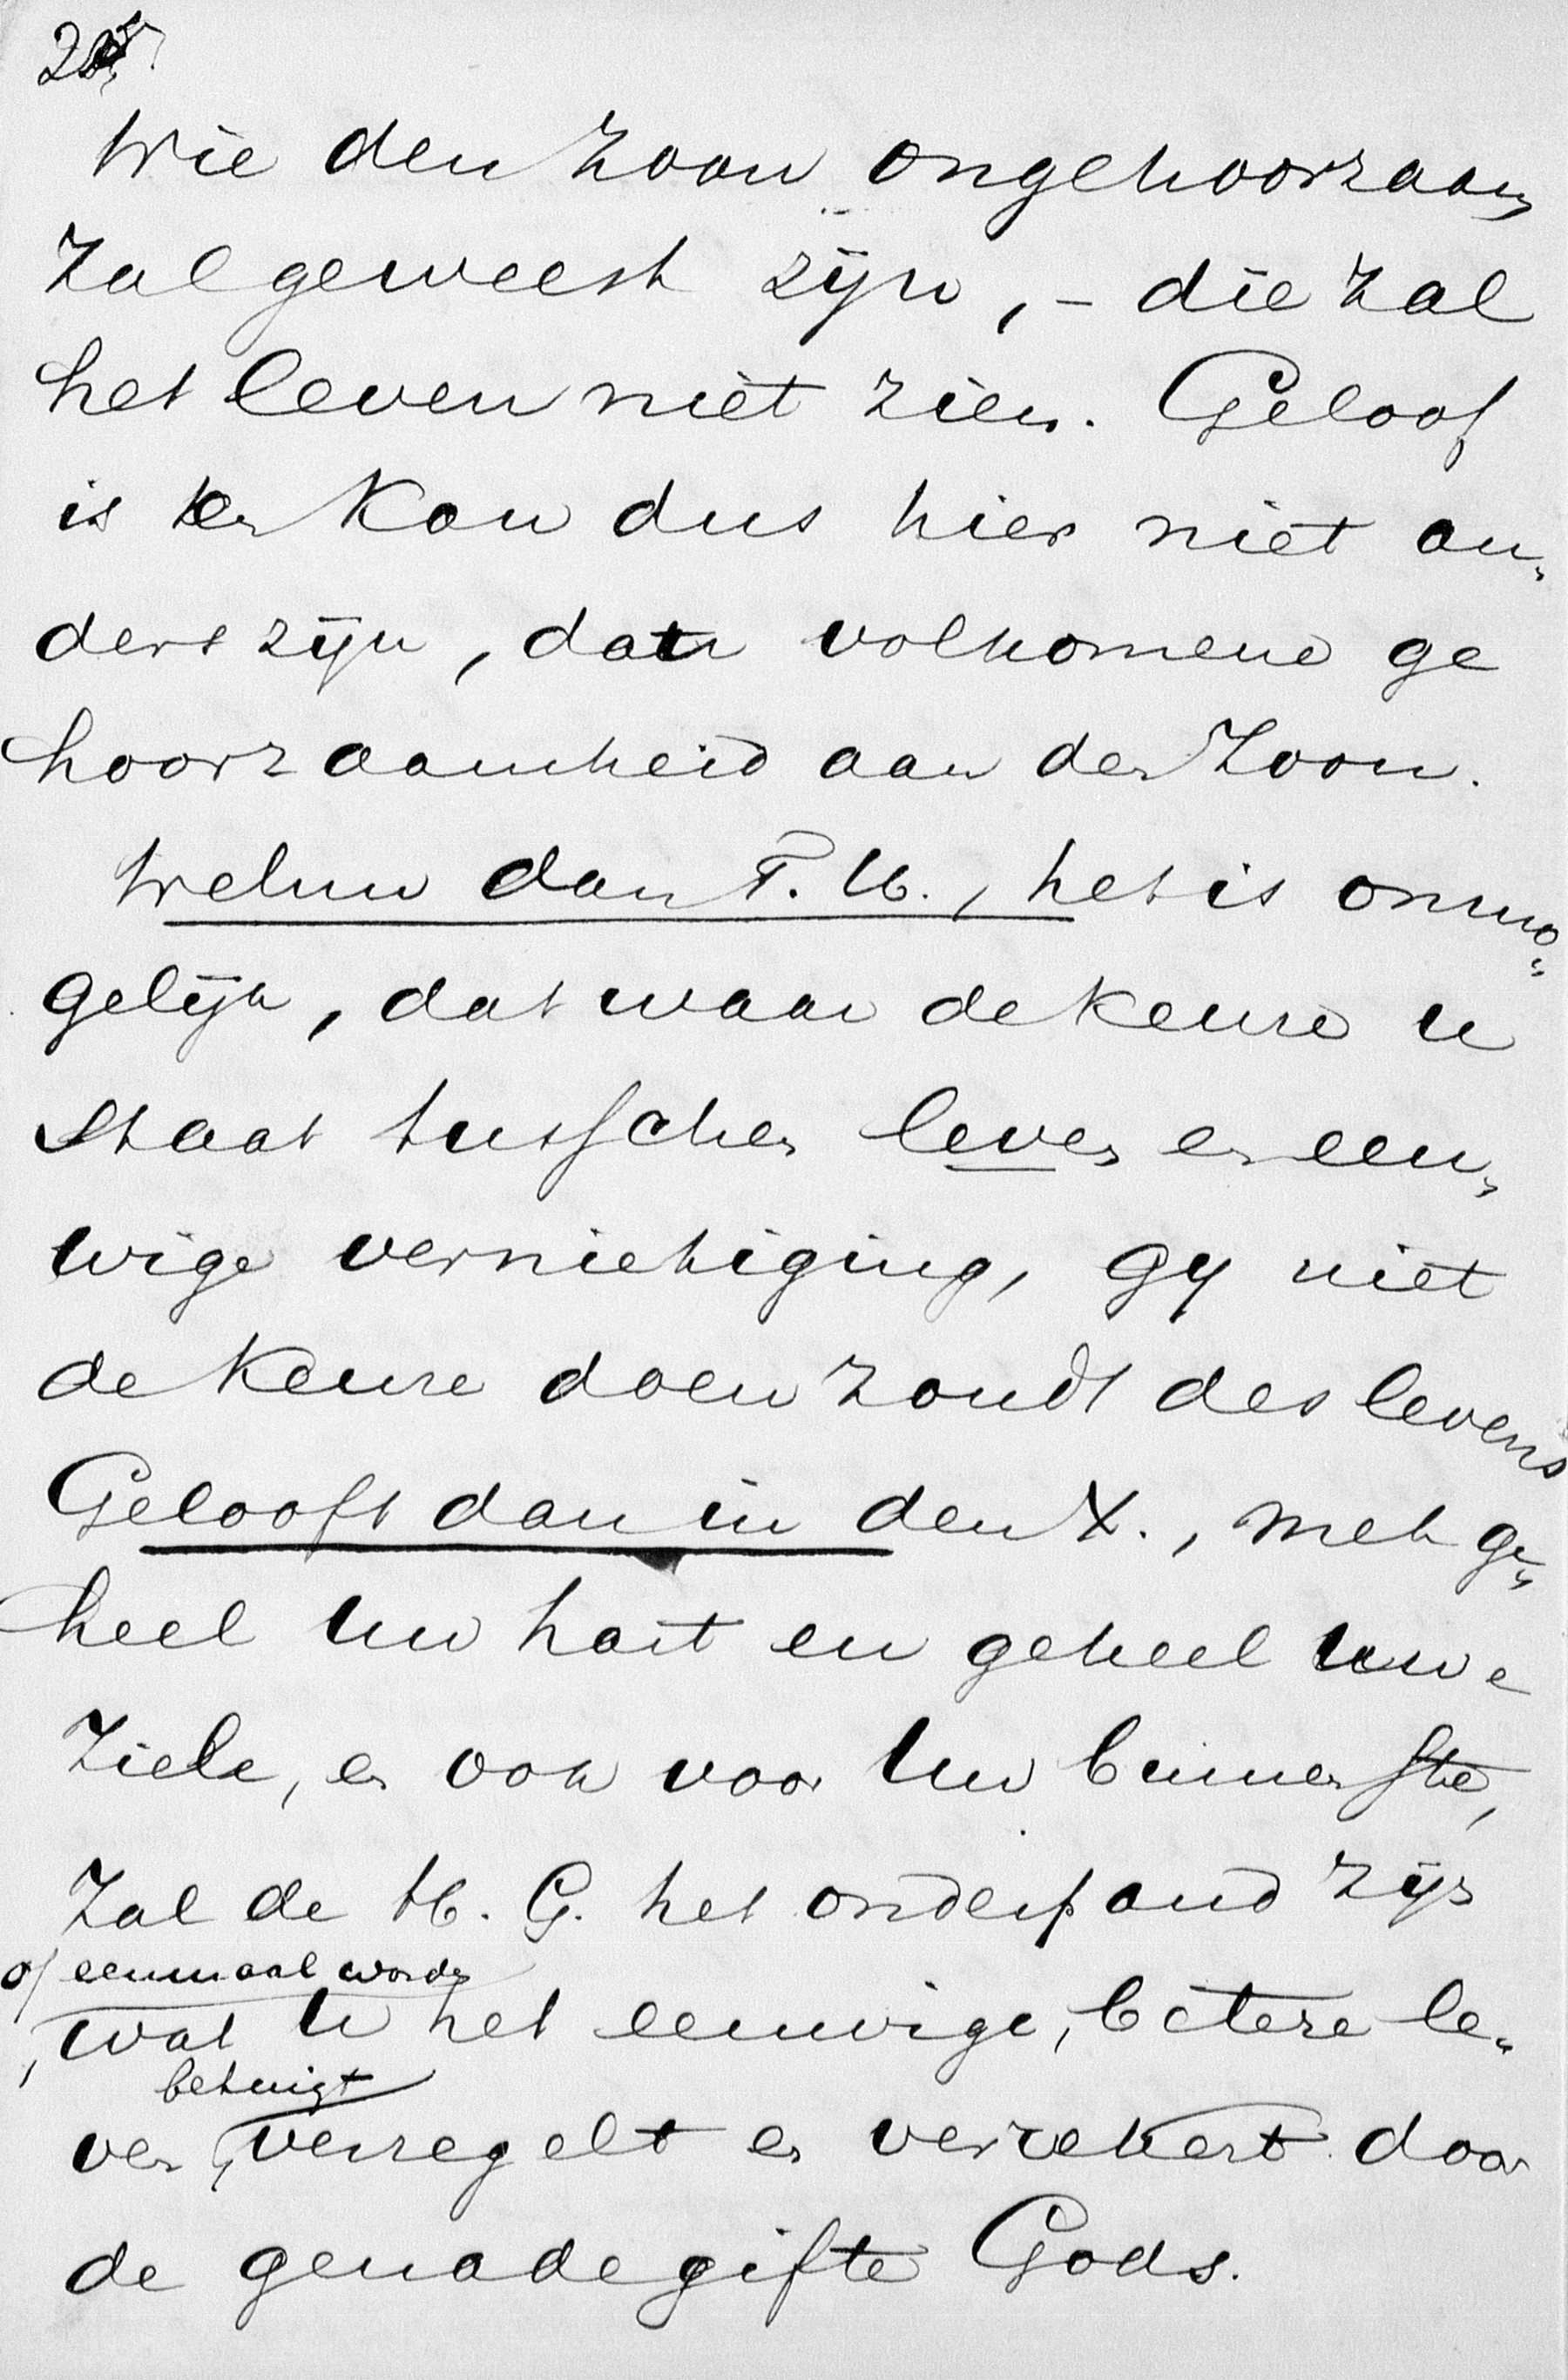 Wie den Zoon ongehoorzaam
zal geweest zijn, – die zal
het leven niet zien. Geloof
is en kon dus hier niet an„
ders zijn, dan volkomene ge
hoorzaamheid aan den Zoon.
Welnu dan T. H., het is onmo„
gelijk, dat waar de keuze u
staat tusschen leven en eeu„
wige vernietiging, gy niet
de keuze doen zoudt des levens
Gelooft dan in den X., met ge„
heel Uw hart en geheel uwe
Ziele, en ook voor Uw binnenste,
Zal de H. G. het onderpand zijn
of eenmaal worden
, wat U het eeuwige, betere le„
betuigt
ven, verzegelt en verzekert door
de genadegifte Gods.